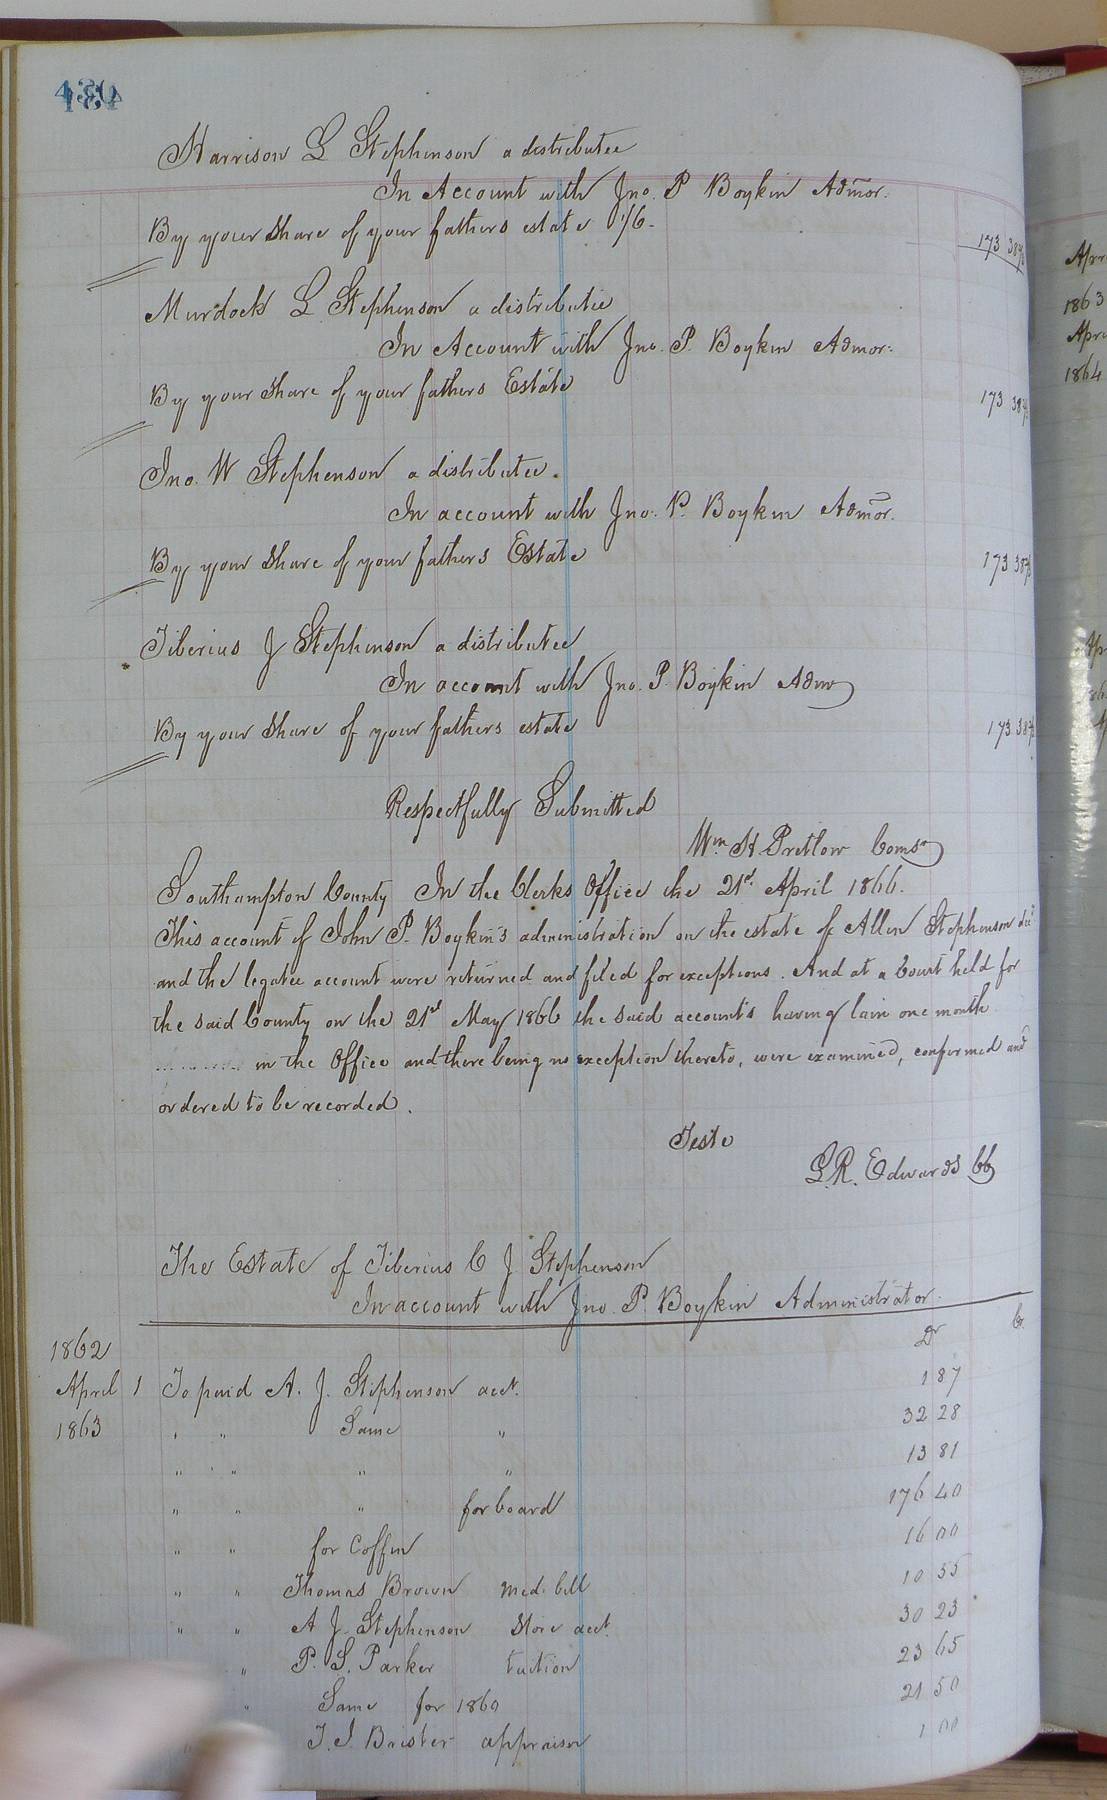 430
Harrison L Stephenson a distributee
In Account with Jno. P Boykin Admor.
By your share of your fathers estate 1/6. 173 38
Murdock L Stephenson a distributee
In Account with Jno. P. Boykin Admor.
By your share of your fathers Estate 173 38
Jno. W Stephenson a distributee.
In account with Jno. P. Boykin Admor.
By your share of your fathers Estate 173 38
Tiberius J Stephenson a distributee
In account with Jno. P. Boykin Admr
By your share of your fathers estate 173 38
Respectfully Submitted
Wm H Pretlow Comsr
Southampton County In the Clerks Office the 21st April 1866.
This account of John P. Boykin's administration on the estate of Allen Stephenson decd
and the legatee account were returned and filed for exceptions. And at a Court held for
the said County on the 21st May 1866 the said accounts having lain one month
in the Office and there being no exception thereto, were examined, confirmed and
ordered to be recorded.
Teste
L.R. Edwards CC
The Estate of Tiberius C J Stephenson
In account with Jno. P. Boykin Administrator.
1862 Dr Cr.
April 1 To paid A. J. Stephenson acct. 1 87
1863 " " Same " 32 28
" " " " 13 81
" " " for board 176 40
" " for Coffin 16 00
" " Thomas Brown med. bill 10 55
" " A J. Stephenson Store acct. 30 23
" P. S. Parker tuition 23 65
" Same for 1860 21 50
T. J. Brister appraiser 1 00
Apri
1863
Apri
1864